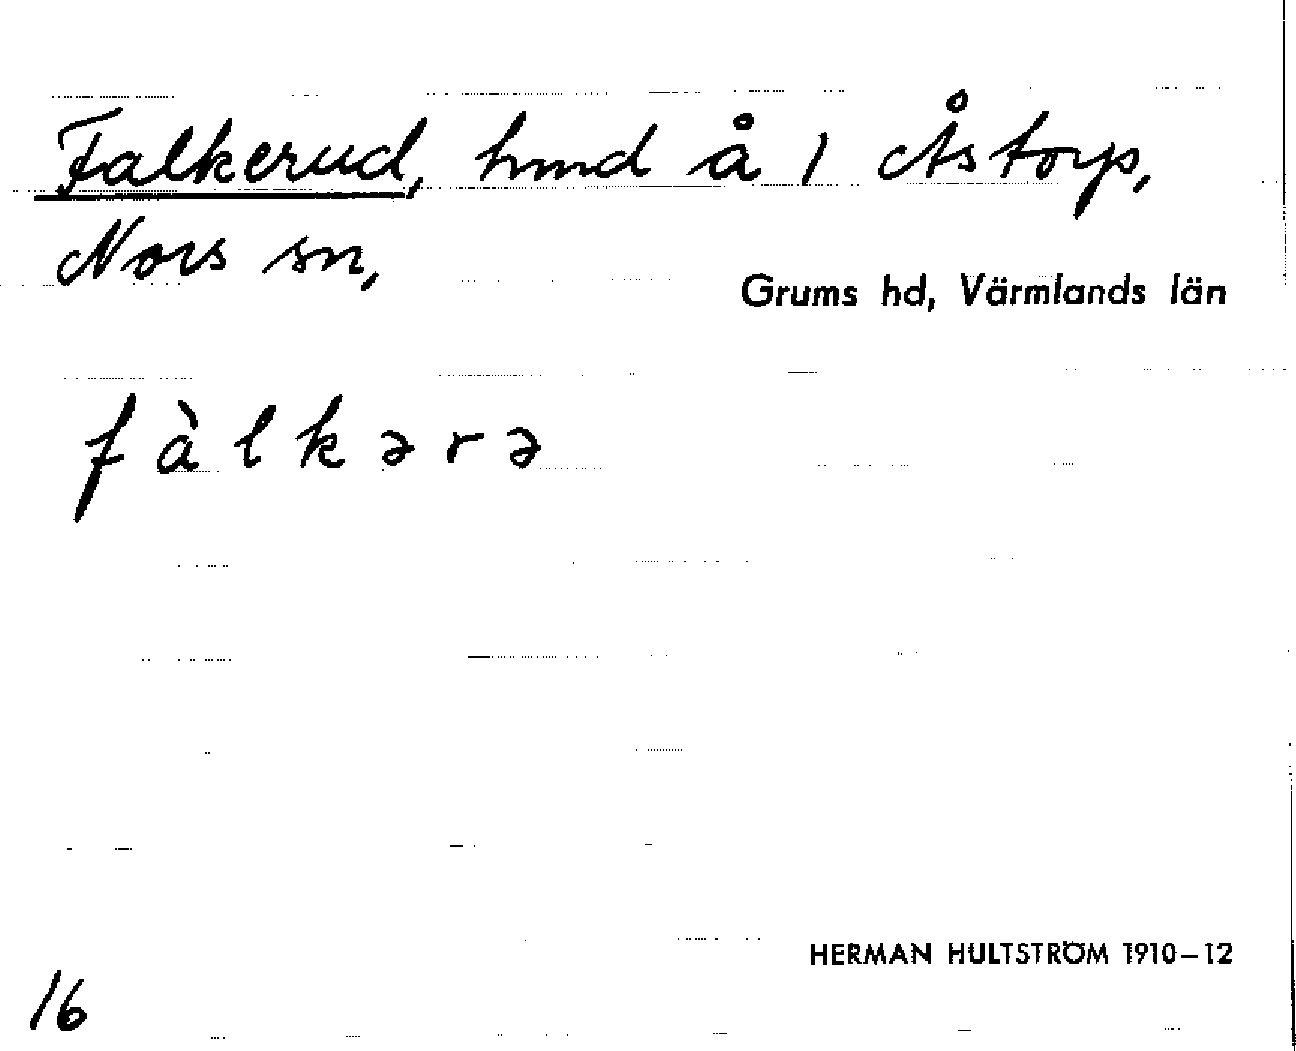 Falkerud, hmd å 1 Åstorp,
Nors sn,
Grums hd, Värmlands län
fàlkərə
HERMAN HULTSTRÖM 1910–12
16